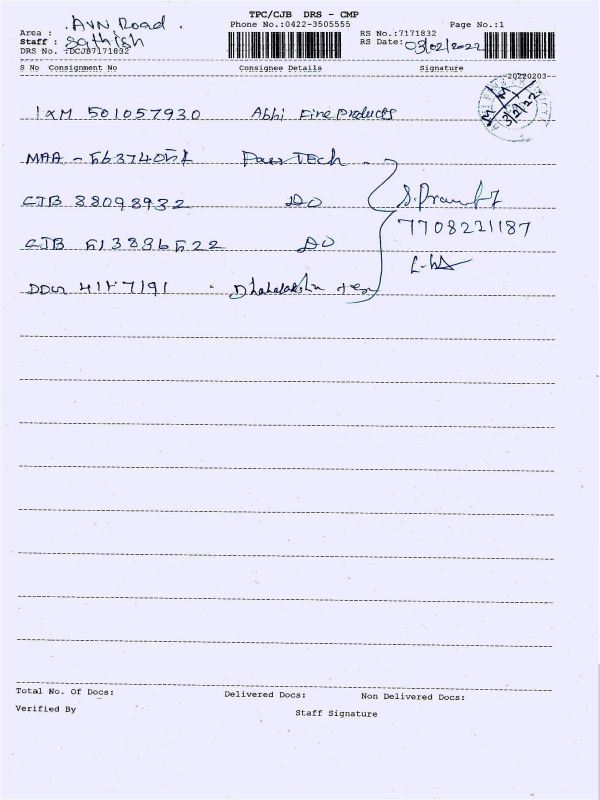 TPC/CJB DRS - CMP
Area : AVN Road.
Phone No.:0422-3505555
Page No.:1
Staff : Sathish
RS No.:7171832
DRS No. :DCJB7171832
RS Date: 03/02/2022
S No Consignment No Consignee Details Signature
-20220203--
3/2/22
IXM 501057930 Abhi Fine Products
MAA - 563740 Tech
CJB 88098932 DO
7708221187
CJB 513896522 DO
4157191
Total No. Of Docs: Delivered Docs: Non Delivered Docs:
Verified By Staff Signature